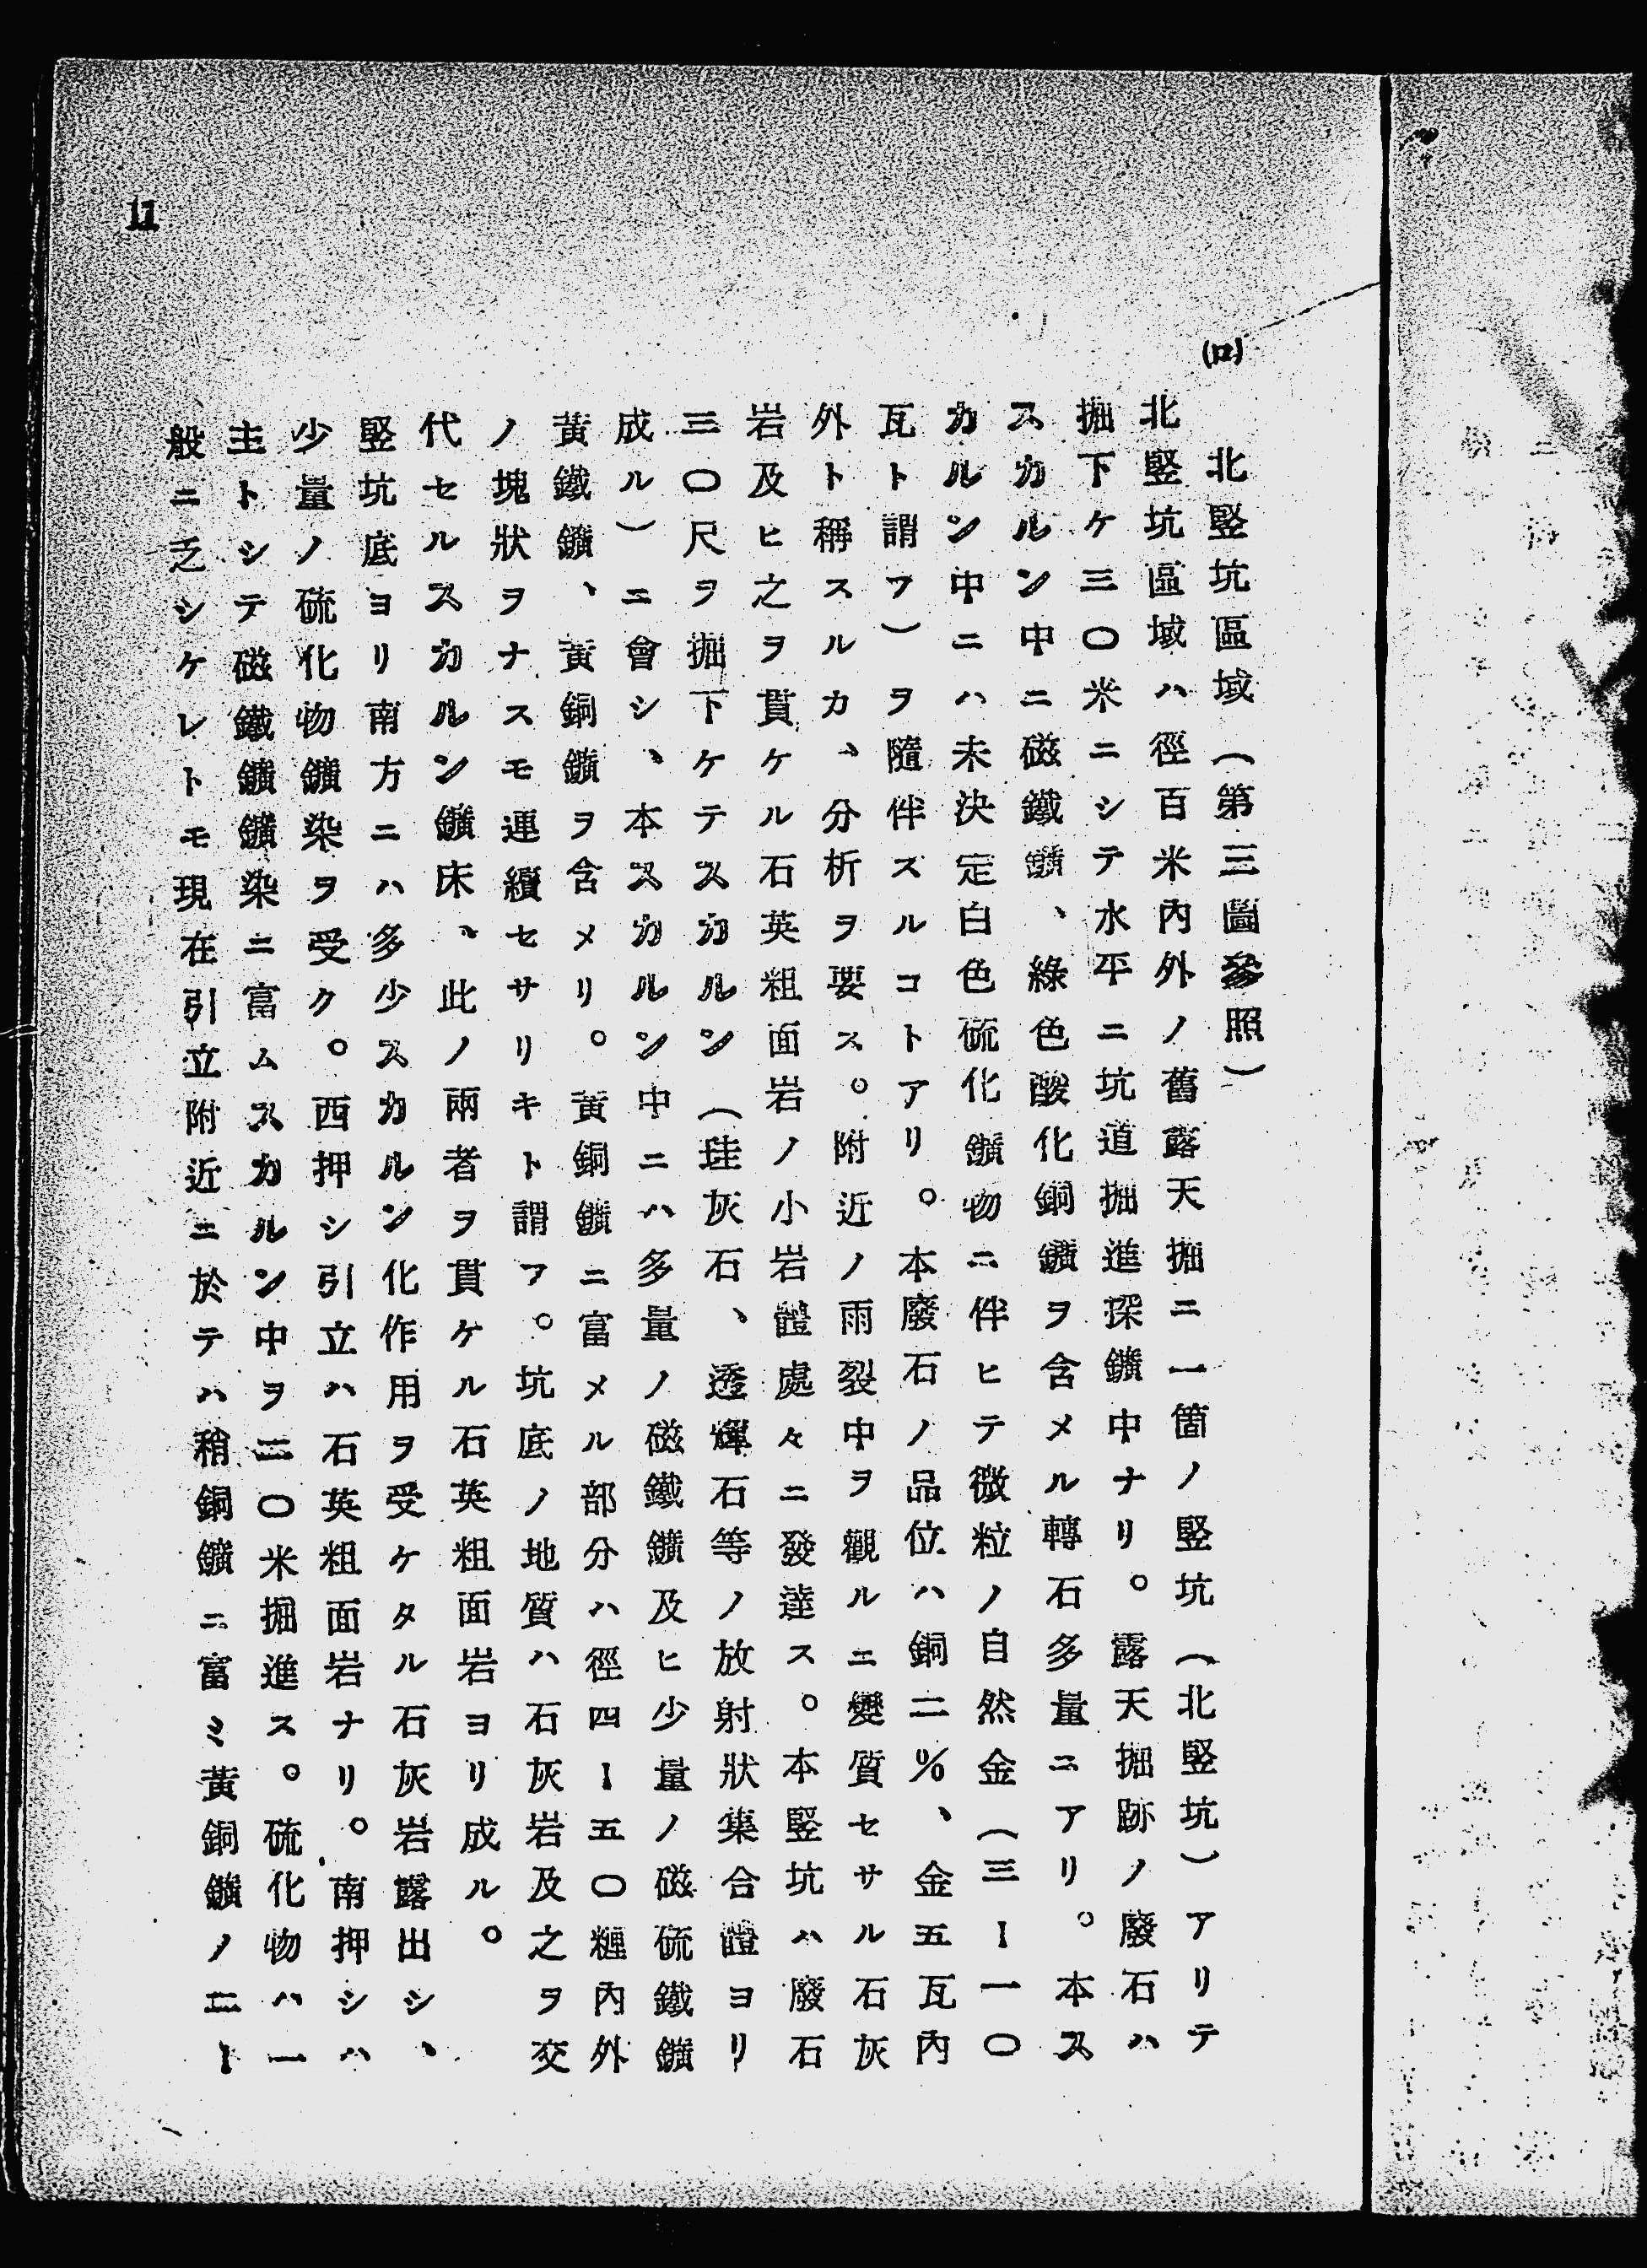 (ロ)　北竪坑區域（第三圖參照）
北竪坑區域ハ徑百米內外ノ舊露天掘ニ一箇ノ竪坑（北竪坑）アリテ
掘下ケ三〇米ニシテ水平ニ坑道掘進探鑛中ナリ。露天掘跡ノ廢石ハ
スカルン中ニ磁鐵鑛、綠色酸化銅鑛ヲ含メル轉石多量ニアリ。本ス
カルン中ニハ未決定白色硫化鑛物ニ伴ヒテ微粒ノ自然金（三ー一〇
瓦ト謂フ）ヲ隨伴スルコトアリ。本廢石ノ品位ハ銅二％、金五瓦內
外ト稱スルカ、分析ヲ要ス。附近ノ雨裂中ヲ觀ルニ變質セサル石灰
岩及ヒ之ヲ貫ケル石英粗面岩ノ小岩體處々ニ發達ス。本竪坑ハ廢石
三〇尺ヲ掘下ケテスカルン（珪灰石、透輝石等ノ放射狀集合體ヨリ
成ル）ニ會シ、本スカルン中ニハ多量ノ磁鐵鑛及ヒ少量ノ磁硫鐵鑛
黃鐵鑛、黃銅鑛ヲ含メリ。黃銅鑛ニ富メル部分ハ徑四ー五〇糎內外
ノ塊狀ヲナスモ連續セサリキト謂フ。坑底ノ地質ハ石灰岩及之ヲ交
代セルスカルン鑛床、此ノ兩者ヲ貫ケル石英粗面岩ヨリ成ル。
竪坑底ヨリ南方ニハ多少スカルン化作用ヲ受ケタル石灰岩露出シ、
少量ノ硫化物鑛染ヲ受ク。西押シ引立ハ石英粗面岩ナリ。南押シハ
主トシテ磁鐵鑛鑛染ニ富ムスカルン中ヲ二〇米掘進ス。硫化物ハ一
般ニ乏シケレトモ現在引立附近ニ於テハ稍銅鑛ニ富ミ黃銅鑛ノ二ー
11